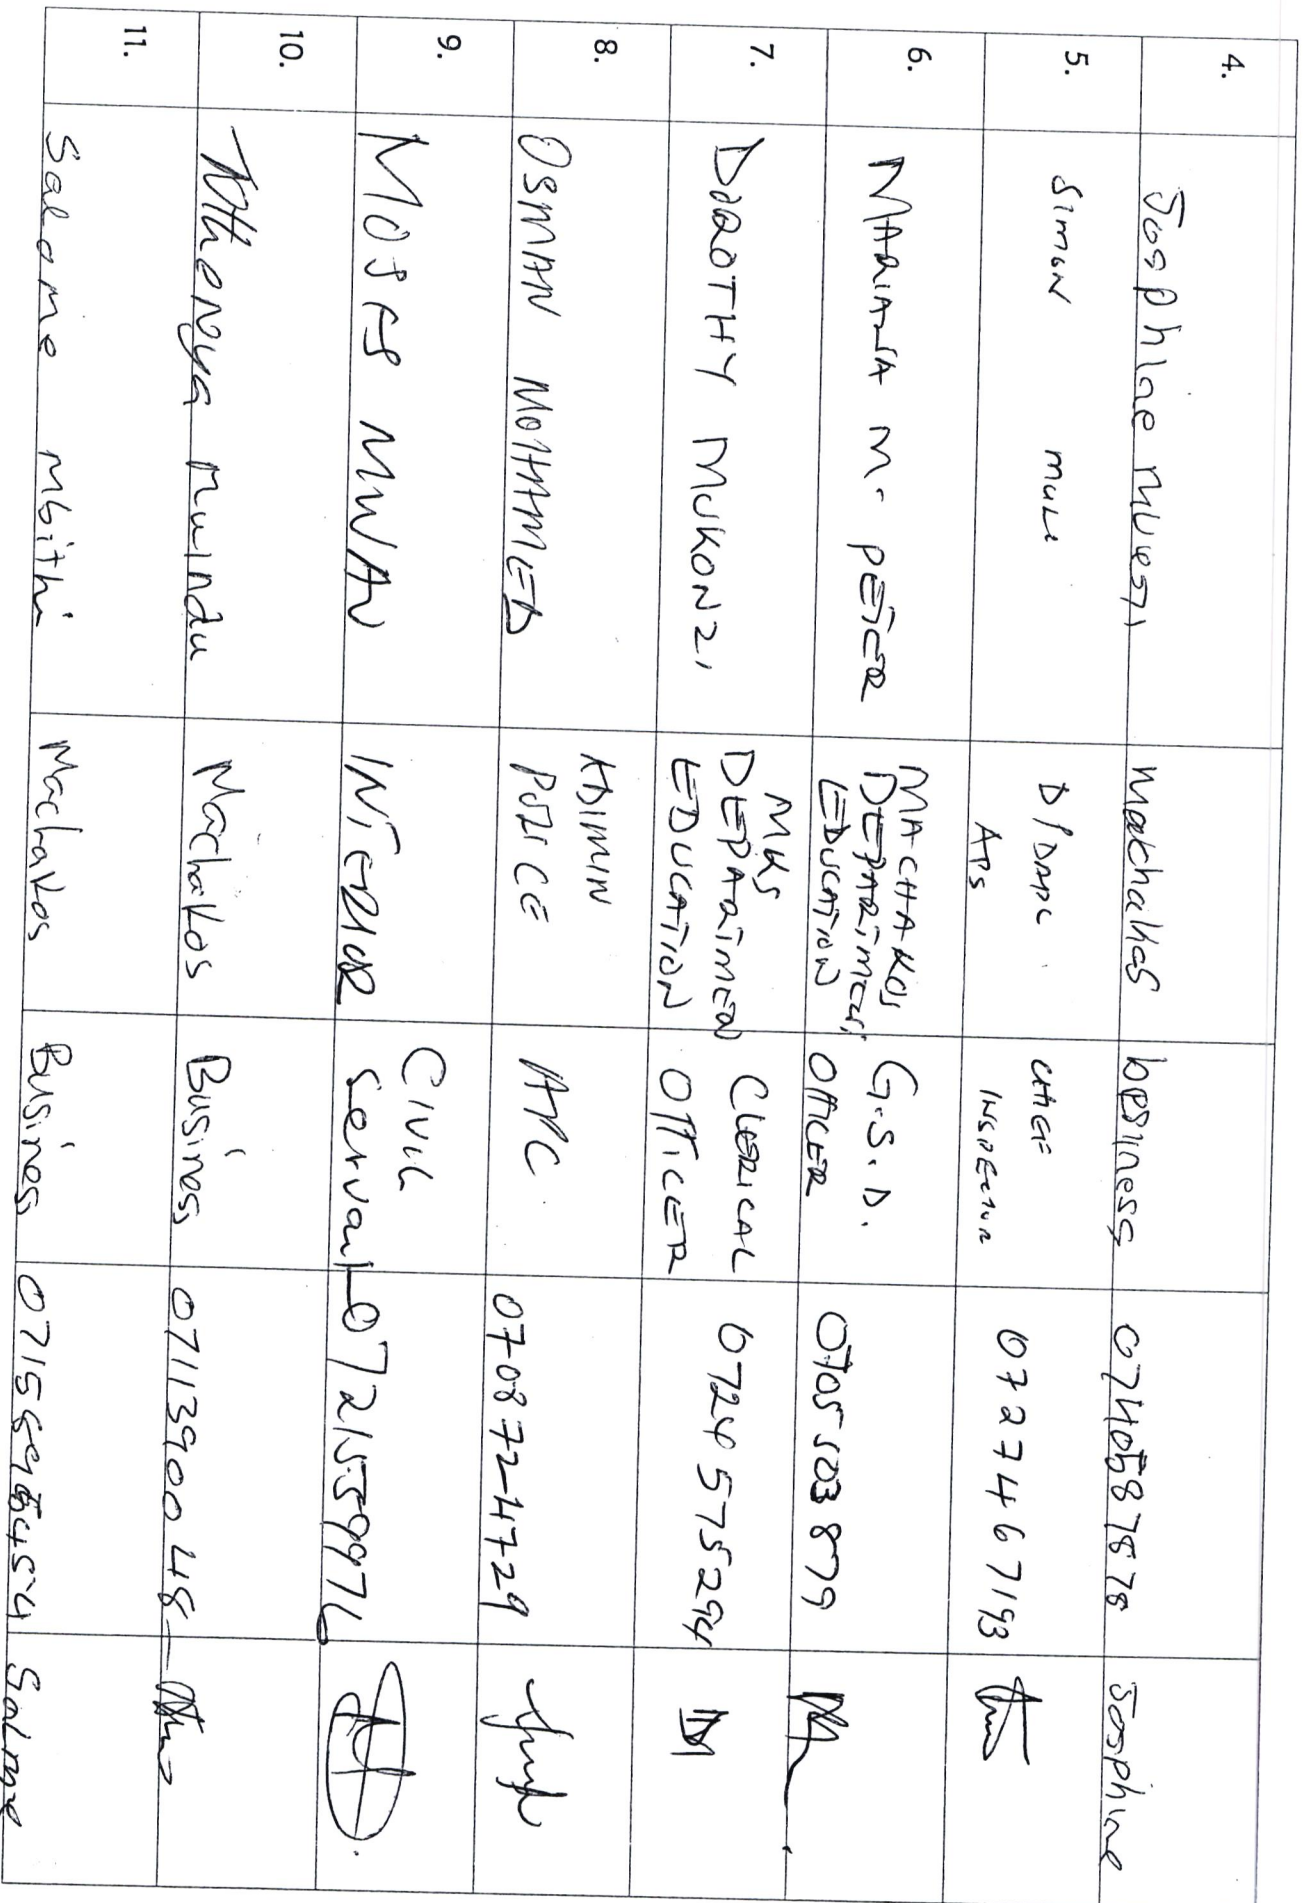 4. Josphine Mueni Machakos business 0740587878 Josphine
5. SIMON MULI D/DAPC APs CHIEF INSPECTOR 0727467193
6. MARIANA M. PETER MACHAKOS DEPARTMENT EDUCATION G.S.D. OFFICER 0705503879
7. DOROTHY MUKONZI MKS DEPARTMENT EDUCATION CLERICAL OFFICER 0724575294 DM
8. OSMAN MOHAMED ADIMIN POLICE APC. 0708724729
9. MOSES MWAU INTERIOR CIVIL Servant
10. Nthenya Muindu Machakos Business 0711390048
11. Salome Mbithi Machakos Business Salome